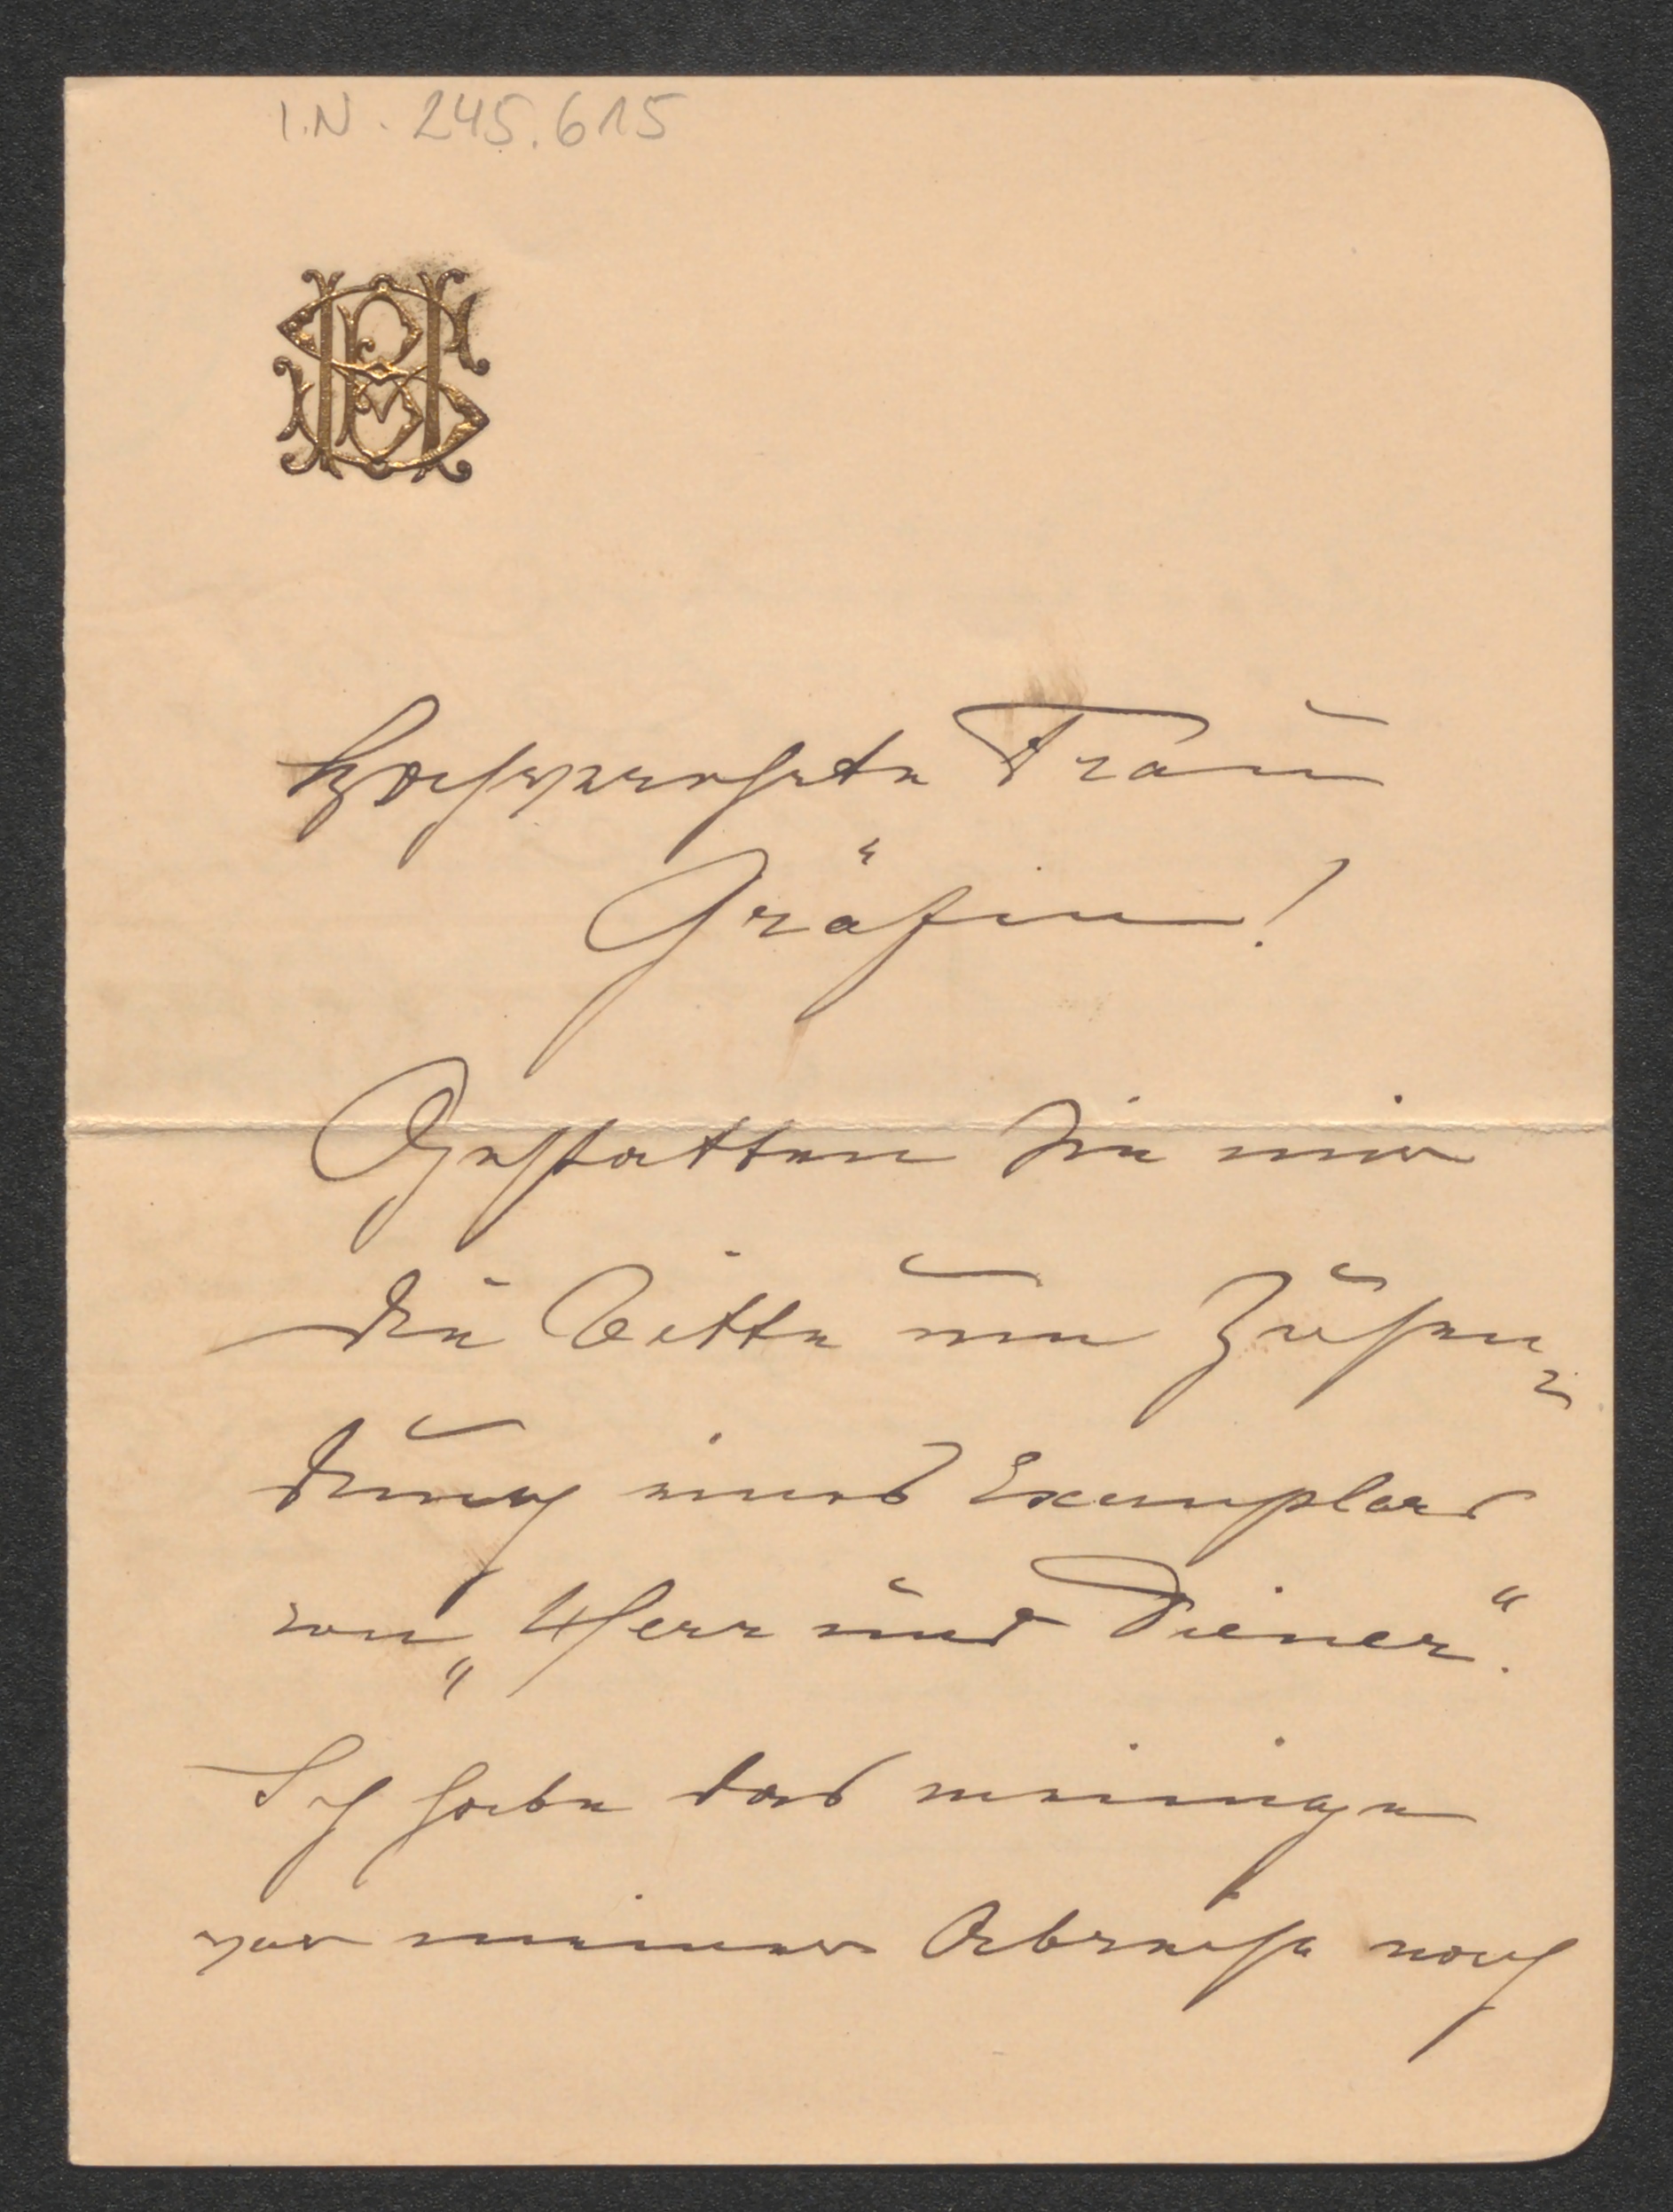 I.N. 245.615
Hochverehrte Frau
Gräfin!
Gestatten Sie mir
die Bitte um Zusen-
dung eines Exemplars
von „Herr und Diener“.
Ich habe das meinige
vor meiner Abreise noch